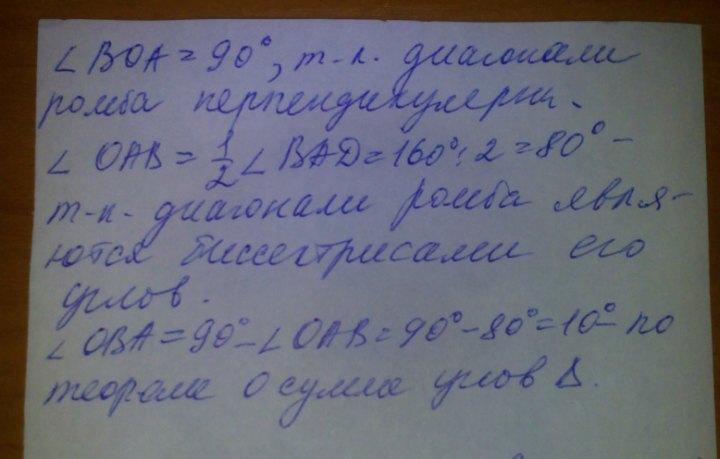 ∠ BOA = 90°, т.к. диагонали
ромба перпендикулярны.
∠ OAB = 1/2 ∠ BAD = 160° : 2 = 80° –
т.к. диагонали ромба явля-
ются биссектрисами его
углов.
∠ OBA = 90° – ∠ OAB = 90° – 80° = 10° – по
теореме о сумме углов Δ.